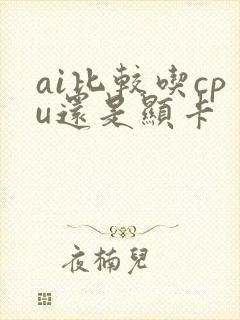 ai比較喫cp
u還是顯卡
夜楠兒